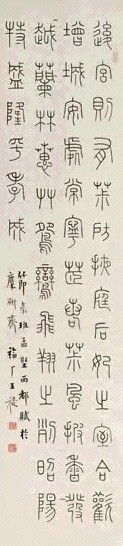 後宮則有茮房掖庭后妃之室合歡
增城安處常寧茝若茮風披香發
越蘭林蕙艸鴛鸞飛翔之列昭陽
特盛隆乎孝成
節彔班孟堅西都賦於
麋研齋福厂王褆